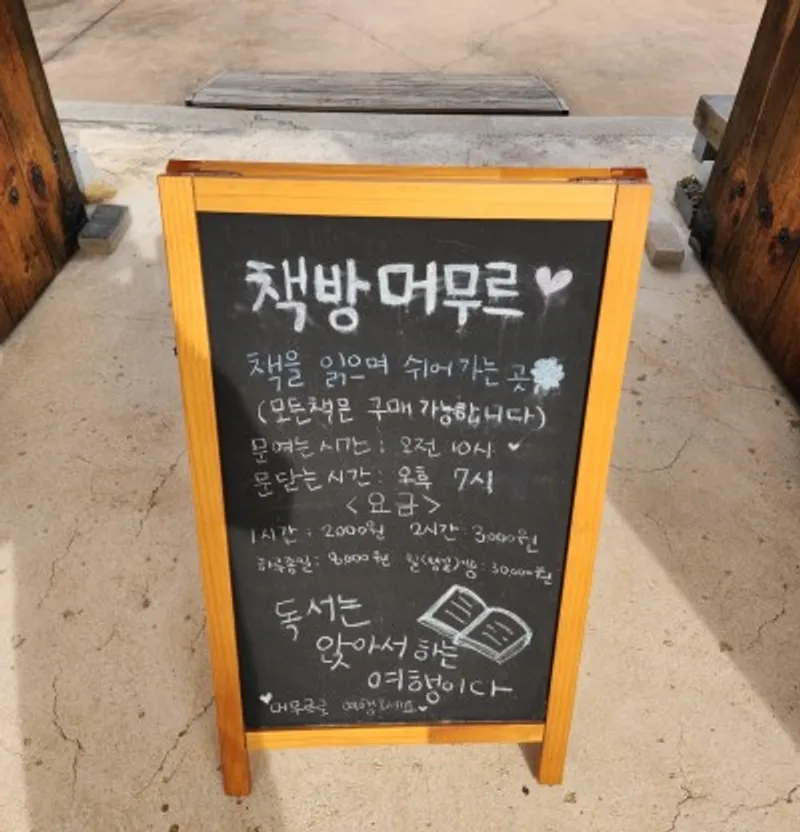 책방 머무르
책을 읽으며 쉬어 가는 곳
(모든책은 구매 가능합니다)
문여는시간 : 오전 10시
문닫는시간 : 오후 7시
<요금>
1시간 : 2000원 2시간 : 3000원
하루종일 : 8,000원 : 30,000원
독서는
앉아서 하는
여행이다